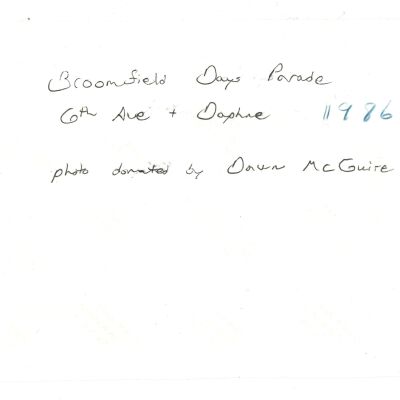 Broomfield Days Parade
6th Ave + Daphne 1986
photo donated by Dawn McGuire